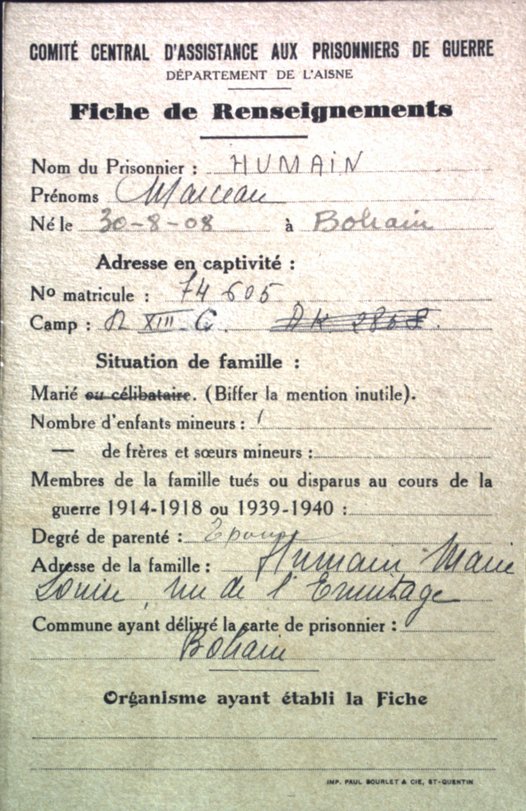 COMITÉ CENTRAL D'ASSISTANCE AUX PRISONNIERS DE GUERRE
DÉPARTEMENT DE L'AISNE
Fiche de Renseignements
Nom du Prisonnier : HUMAIN
Prénoms Marceau
Né le 30-8-08 à Bohain
Adresse en captivité :
No matricule : 74 605
Camp : XIII C. AK 2808.
Situation de famille :
Marié ou célibataire. (Biffer la mention inutile).
Nombre d'enfants mineurs : 1
— de frères et sœurs mineurs :
Membres de la famille tués ou disparus au cours de la
guerre 1914-1918 ou 1939-1940 :
Degré de parenté : Epouse
Adresse de la famille : Humain Marie
Louise, rue de l'Ermitage
Commune ayant délivré la carte de prisonnier :
Bohain
Organisme ayant établi la Fiche
IMP. PAUL BOURLET & CIE, ST-QUENTIN